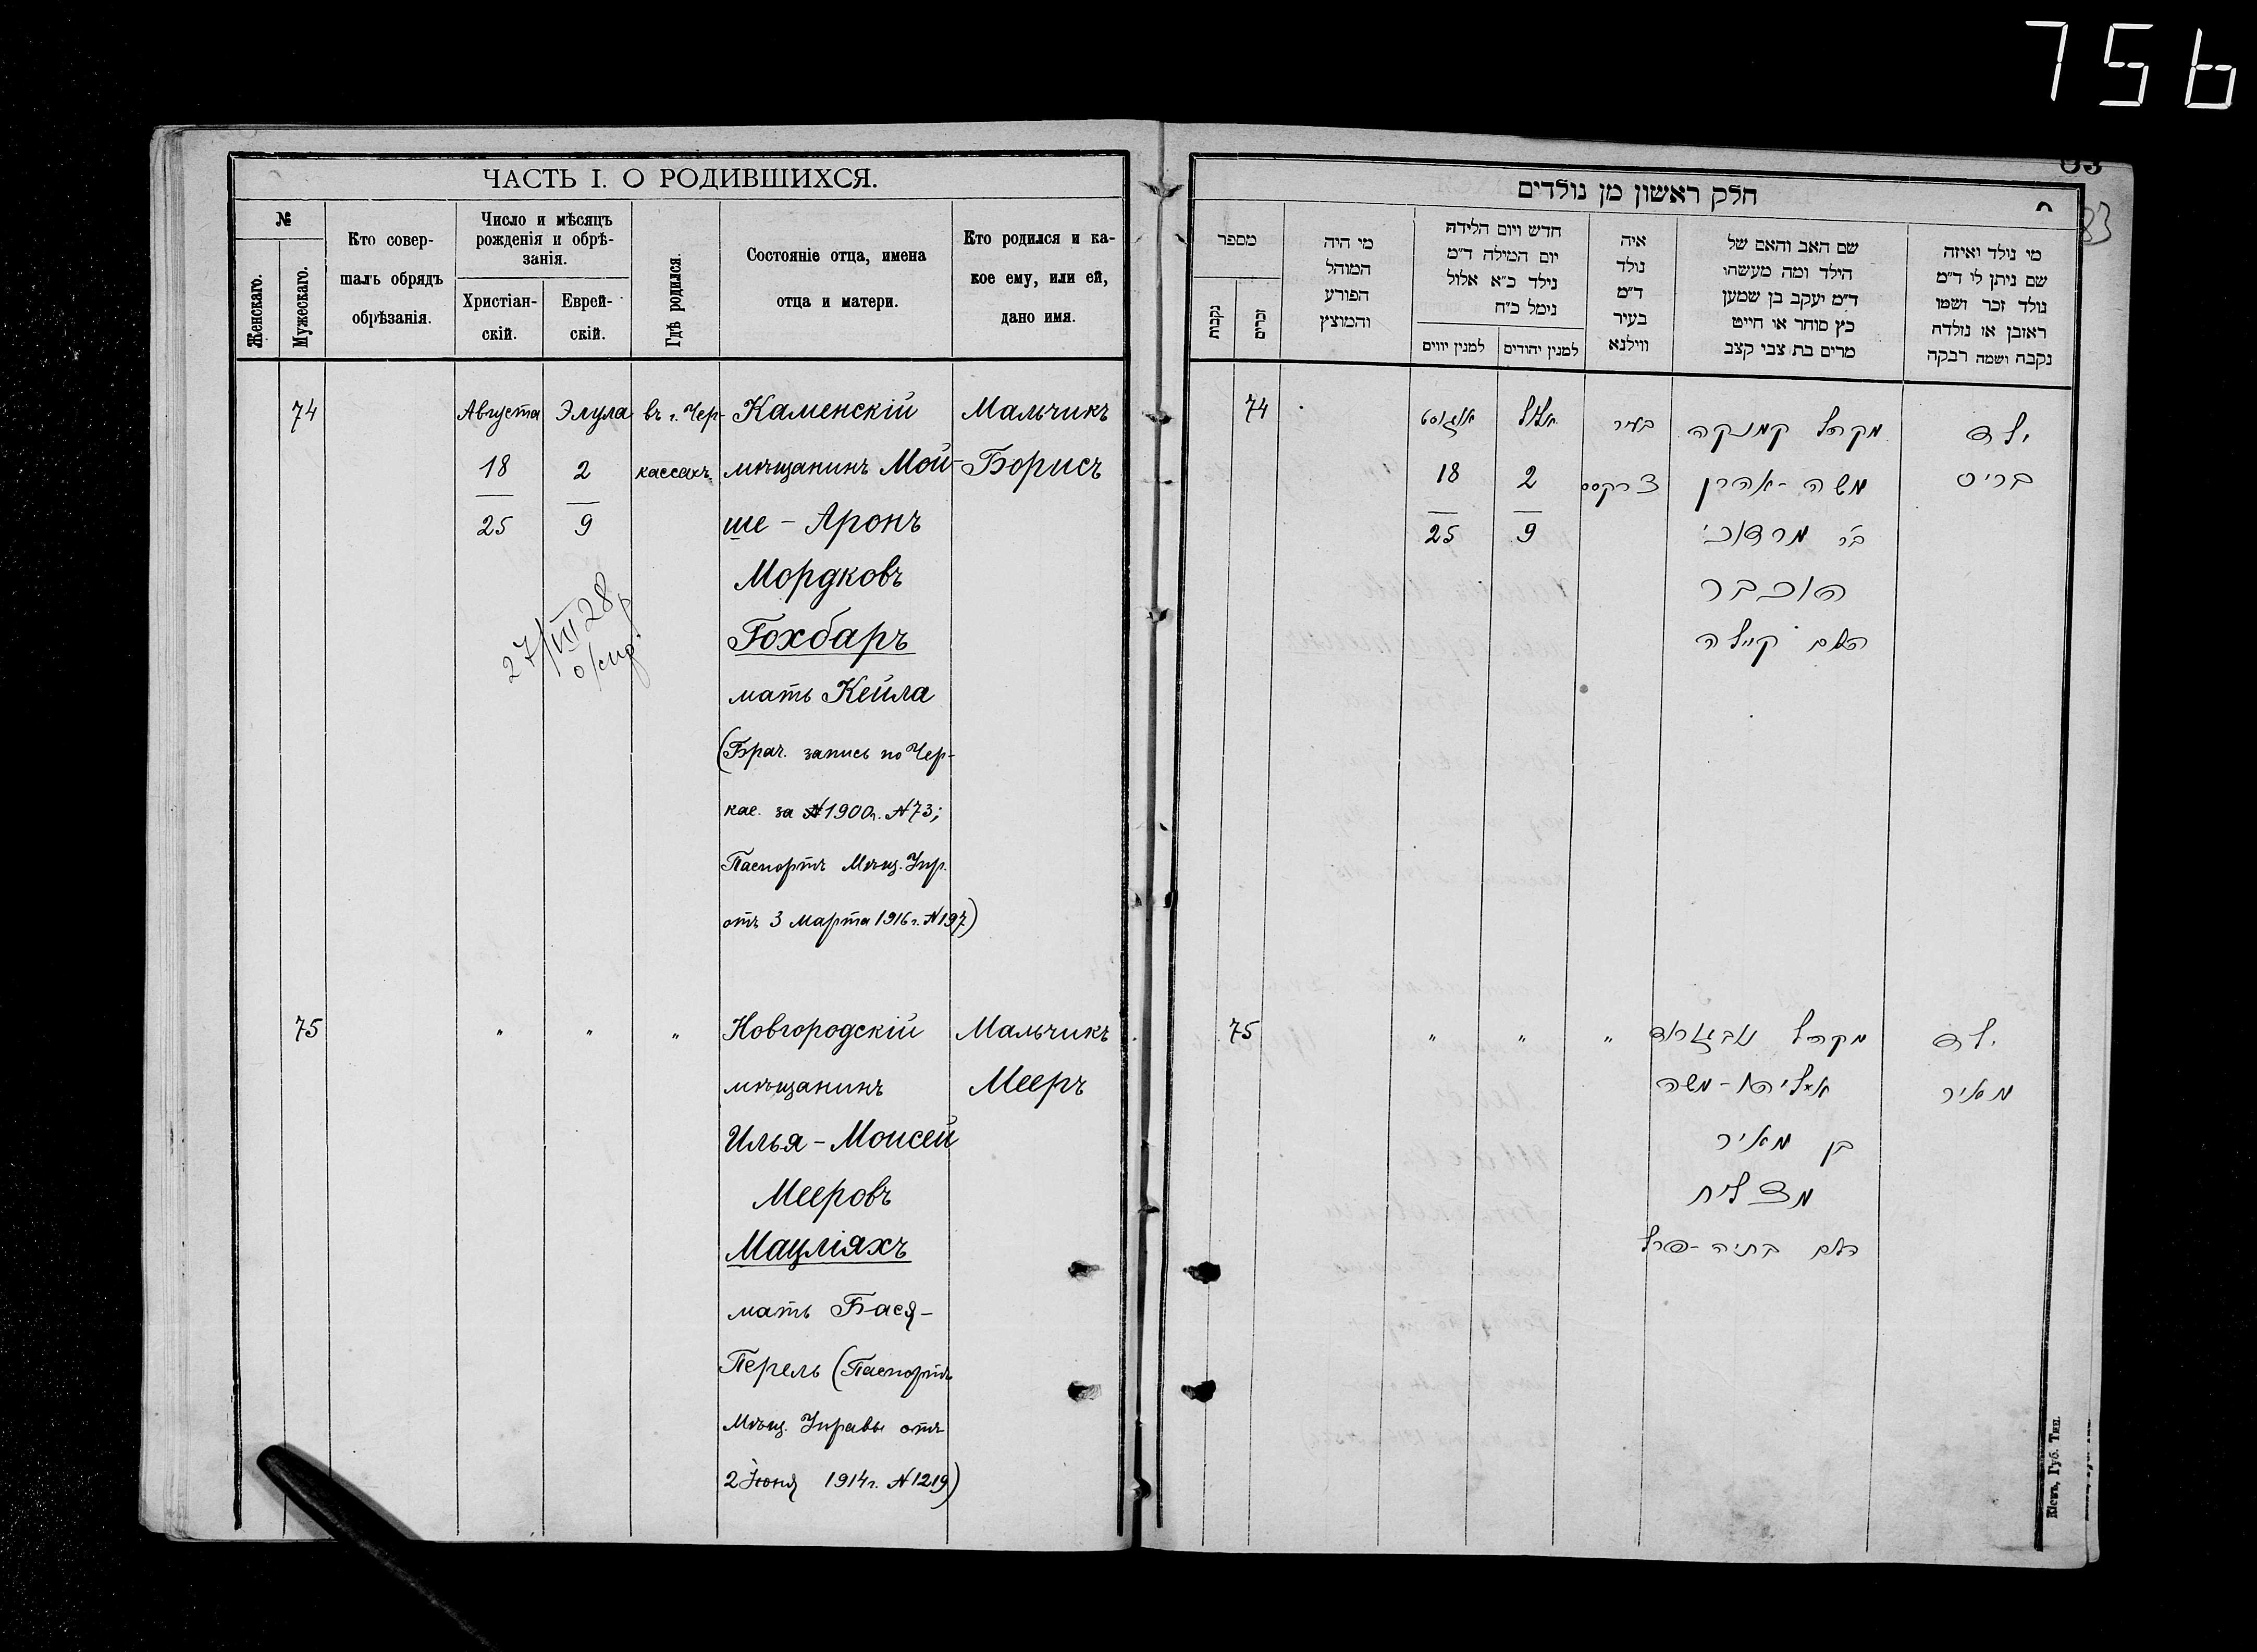 756
ЧАСТЬ I. О РОДИВШИХСЯ.
№
Женскаго.
Мужескаго.
Кто совер-
шалъ обрядъ
обрѣзанія.
Число и мѣсяцъ
рожденія и обрѣ-
занія.
Христіан-
скій.
Еврей-
скій.
Гдѣ родился.
Состояніе отца, имена
отца и матери.
Кто родился и ка-
кое ему, или ей,
дано имя.
74
Августа
18
25
Элула
2
9
въ г. Чер-
кассахъ.
Каменскій
мѣщанинъ Мой-
ше - Аронъ
Мордковъ
Гохбаръ
мать Кейла
(Брач. запись по Чер-
кас. за 1900г. №73;
Паспортъ Мѣщ. Упр.
отъ 3 Марта 1916г. №197)
Мальчикъ
Борисъ
27/VIII 28р
75
" " "
Новгородскій
мѣщанинъ
Илья - Моисей
Мееровъ
Мацліяхъ
мать Бася-
Перель (Паспортъ
Мѣщ. Управы отъ
2 Іюня 1914г. №1219)
Мальчикъ
Мееръ
83
חלק ראשון מן נולדים
מספר
נקבות
זכרים
מי היה
המוהל
הפורע
והמוצץ
חדש ויום הלידה
יום המילה ד״מ
נילד כ״א אלול
נימל כ״ח
למנין יווים
למנין יהודים
איה
נולד
ד״מ
בעיר
ווילנא
שם האב והאם של
הילד ומה מעשהו
ד״מ יעקב בן שמעון
כץ סוחר או חייט
מרים בת צבי קצב
מי נולד ואיזה
שם ניתן לו ד״מ
נולד זכר ושמו
ראובן או נולדה
נקבה ושמה רבקה
74
אוגוסט
18
25
אלול
2
9
בעיר
צרקסס
מקהל קמנקה
משה-אהרן
ב״ר מרדכי
הוכבר
האם קיילה
ילד
בריס
75
" " "
מקהל נובגורוד
אליהו-משה
בן מאיר
מצליח
האם בתיה-פרל
ילד
מאיר
Кіевъ, Губ. Тип.